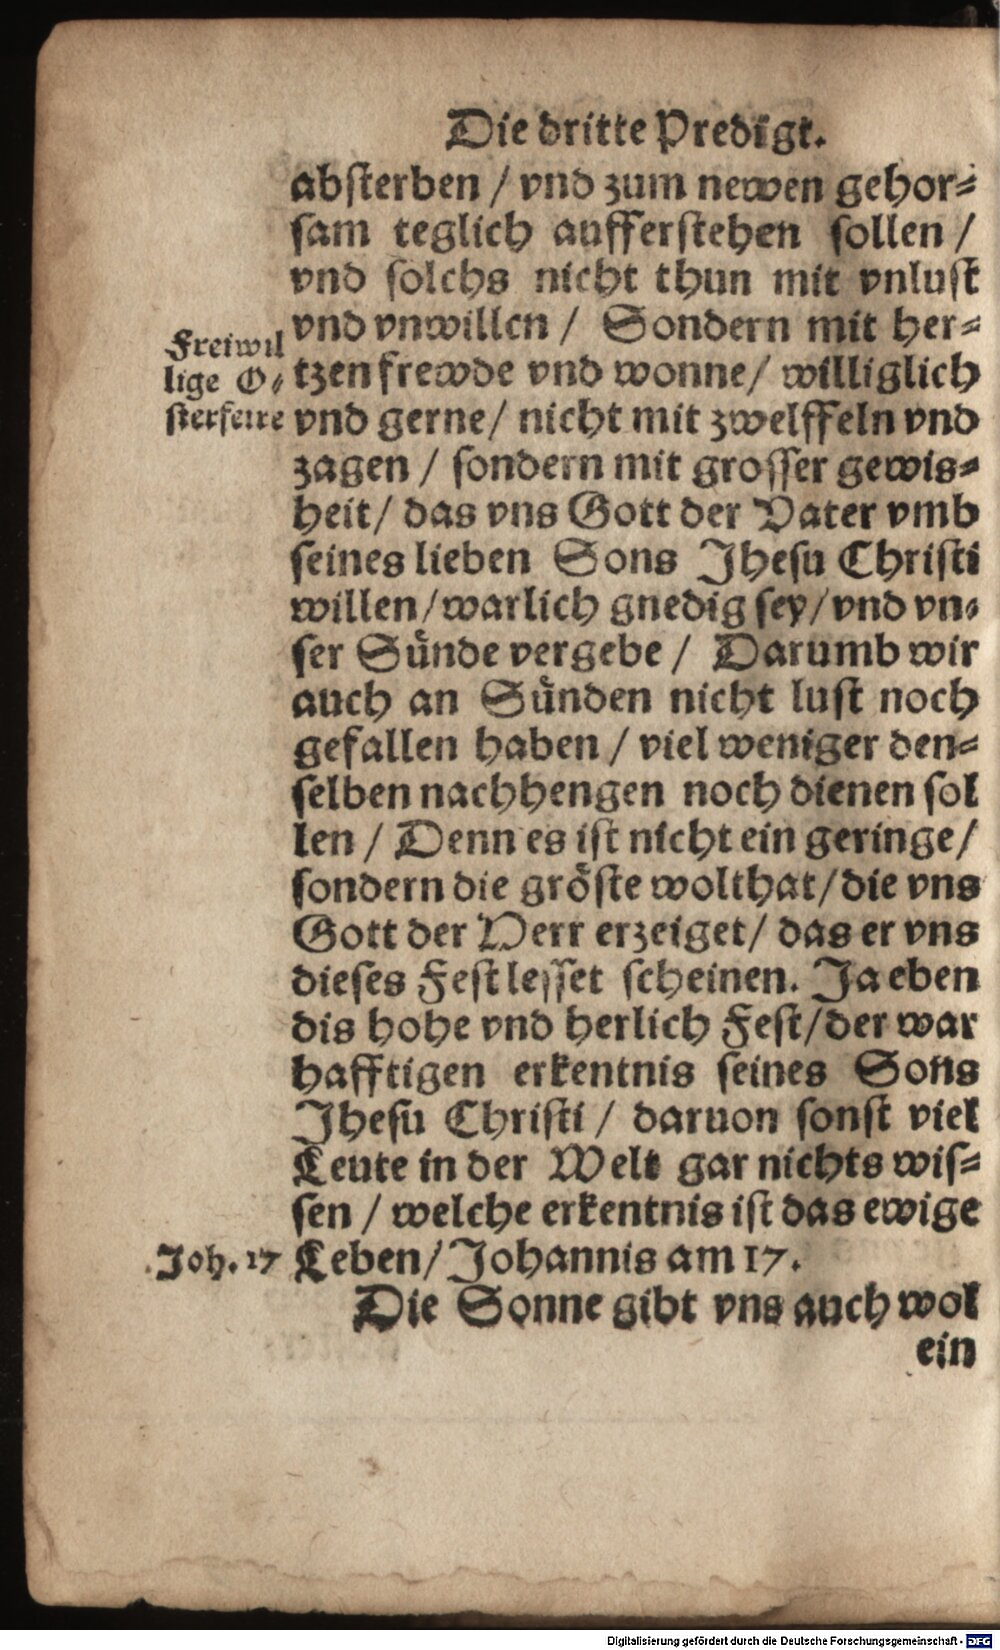 Die dritte Predigt.
absterben / vnd zum newen gehor⸗
sam teglich aufferstehen sollen /
vnd solchs nicht thun mit vnlust
vnd vnwillen / Sondern mit her⸗
tzen frewde vnd wonne / williglich
vnd gerne / nicht mit zweiffeln vnd
zagen / sondern mit grosser gewis⸗
heit / das vns Gott der Vater vmb
seines lieben Sons Jhesu Christi
willen / warlich gnedig sey / vnd vn⸗
ser Sünde vergebe / Darumb wir
auch an Sünden nicht lust noch
gefallen haben / viel weniger den⸗
selben nachhengen noch dienen sol
len / Denn es ist nicht ein geringe /
sondern die gröste wolthat / die vns
Gott der Herr erzeiget / das er vns
dieses Fest lesset scheinen. Ja eben
dis hohe vnd herlich Fest / der war
hafftigen erkentnis seines Sons
Jhesu Christi / daruon sonst viel
Leute in der Welt gar nichts wis⸗
sen / welche erkentnis ist das ewige
Leben / Johannis am 17.
Die Sonne gibt vns auch wol
ein
Freiwil
lige O⸗
sterfeire
Joh. 17
Digitalisierung gefördert durch die Deutsche Forschungsgemeinschaft - DFG